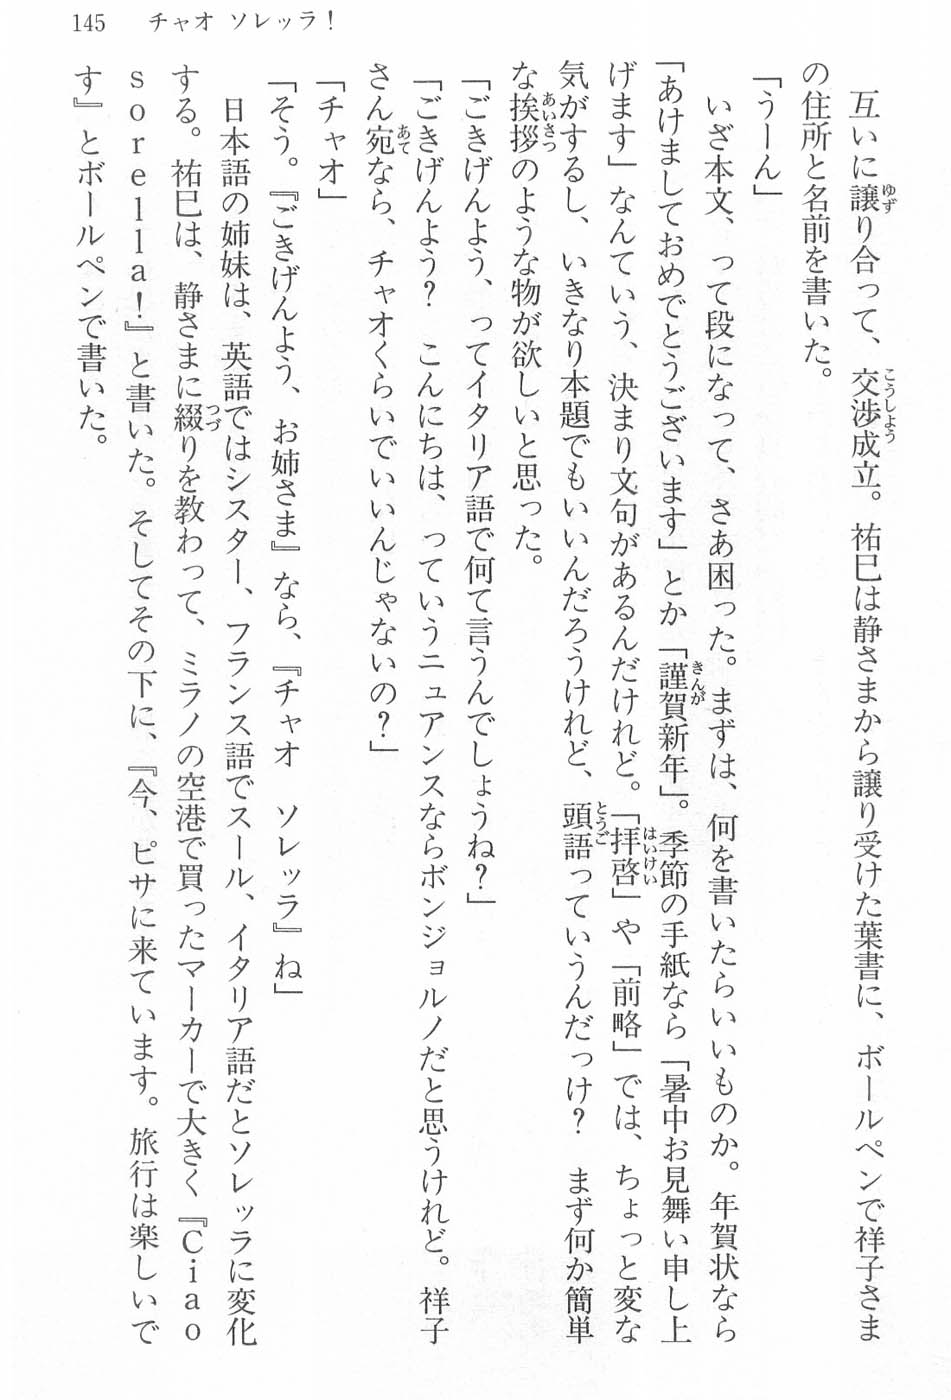 145　チャオ ソレッラ！
　互いに譲り合って、交渉成立。祐巳は静さまから譲り受けた葉書に、ボールペンで祥子さま
の住所と名前を書いた。
「うーん」
　いざ本文、って段になって、さあ困った。まずは、何を書いたらいいものか。年賀状なら
「あけましておめでとうございます」とか「謹賀新年」。季節の手紙なら「暑中お見舞い申し上
げます」なんていう、決まり文句があるんだけれど。「拝啓」や「前略」では、ちょっと変な
気がするし、いきなり本題でもいいんだろうけれど、頭語っていうんだっけ？　まず何か簡単
な挨拶のような物が欲しいと思った。
「ごきげんよう、ってイタリア語で何て言うんでしょうね？」
「ごきげんよう？　こんにちは、っていうニュアンスならボンジョルノだと思うけれど。祥子
さん宛なら、チャオくらいでいいんじゃないの？」
「チャオ」
「そう。『ごきげんよう、お姉さま』なら、『チャオ　ソレッラ』ね」
　日本語の姉妹は、英語ではシスター、フランス語でスール、イタリア語だとソレッラに変化
する。祐巳は、静さまに綴りを教わって、ミラノの空港で買ったマーカーで大きく『Ｃｉａｏ
ｓｏｒｅｌｌａ！』と書いた。そしてその下に、『今、ピサに来ています。旅行は楽しいで
す』とボールペンで書いた。